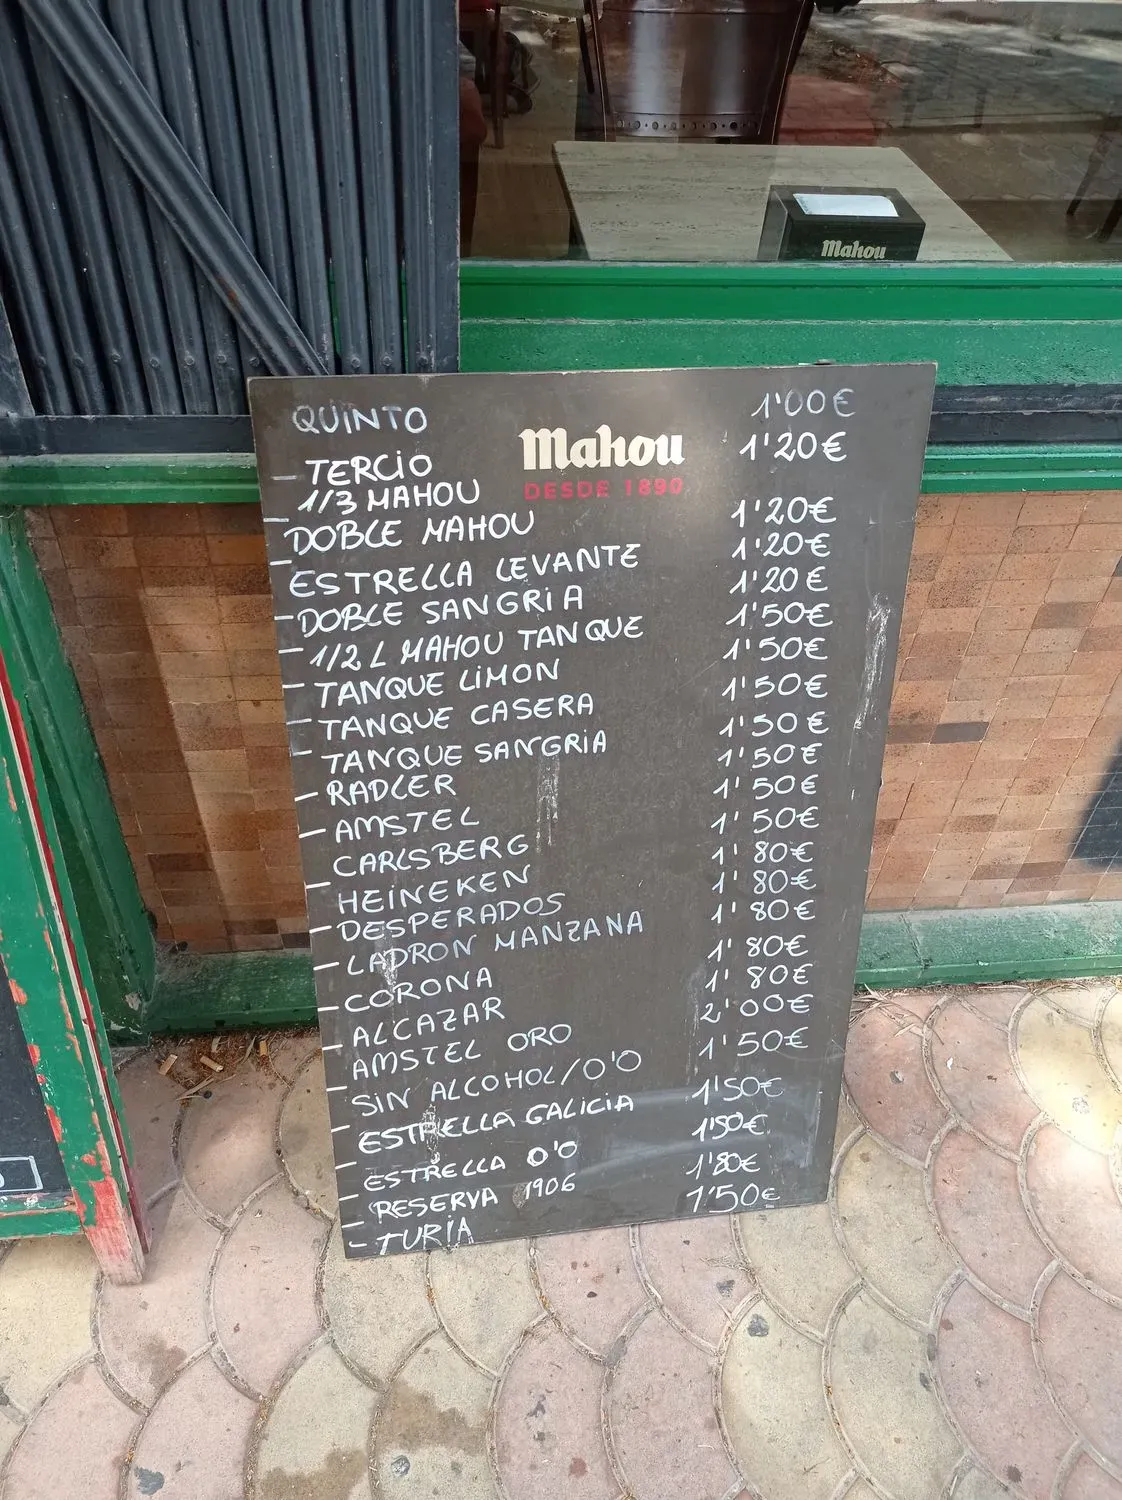 QUINTO 1'00€
Mahou
DESDE 1890
- TERCIO 1'20€
1/3 MAHOU
- DOBLE MAHOU 1'20€
- ESTRELLA LEVANTE 1'20€
- DOBLE SANGRIA 1'20€
- 1/2 L MAHOU TANQUE 1'50€
- TANQUE LIMON 1'50€
- TANQUE CASERA 1'50€
- TANQUE SANGRIA 1'50€
- RADLER 1'50€
- AMSTEL 1'50€
CARLSBERG 1'50€
- HEINEKEN 1'80€
- DESPERADOS 1'80€
- LADRON MANZANA 1'80€
- CORONA 1'80€
- ALCAZAR 1'80€
- AMSTEL ORO 2'00€
- SIN ALCOHOL/0'0 1'50€
- ESTRELLA GALICIA 1'50€
- ESTRELLA 0'0 1'50€
- RESERVA 1906 1'80€
- TURIA 1'50€
Mahou